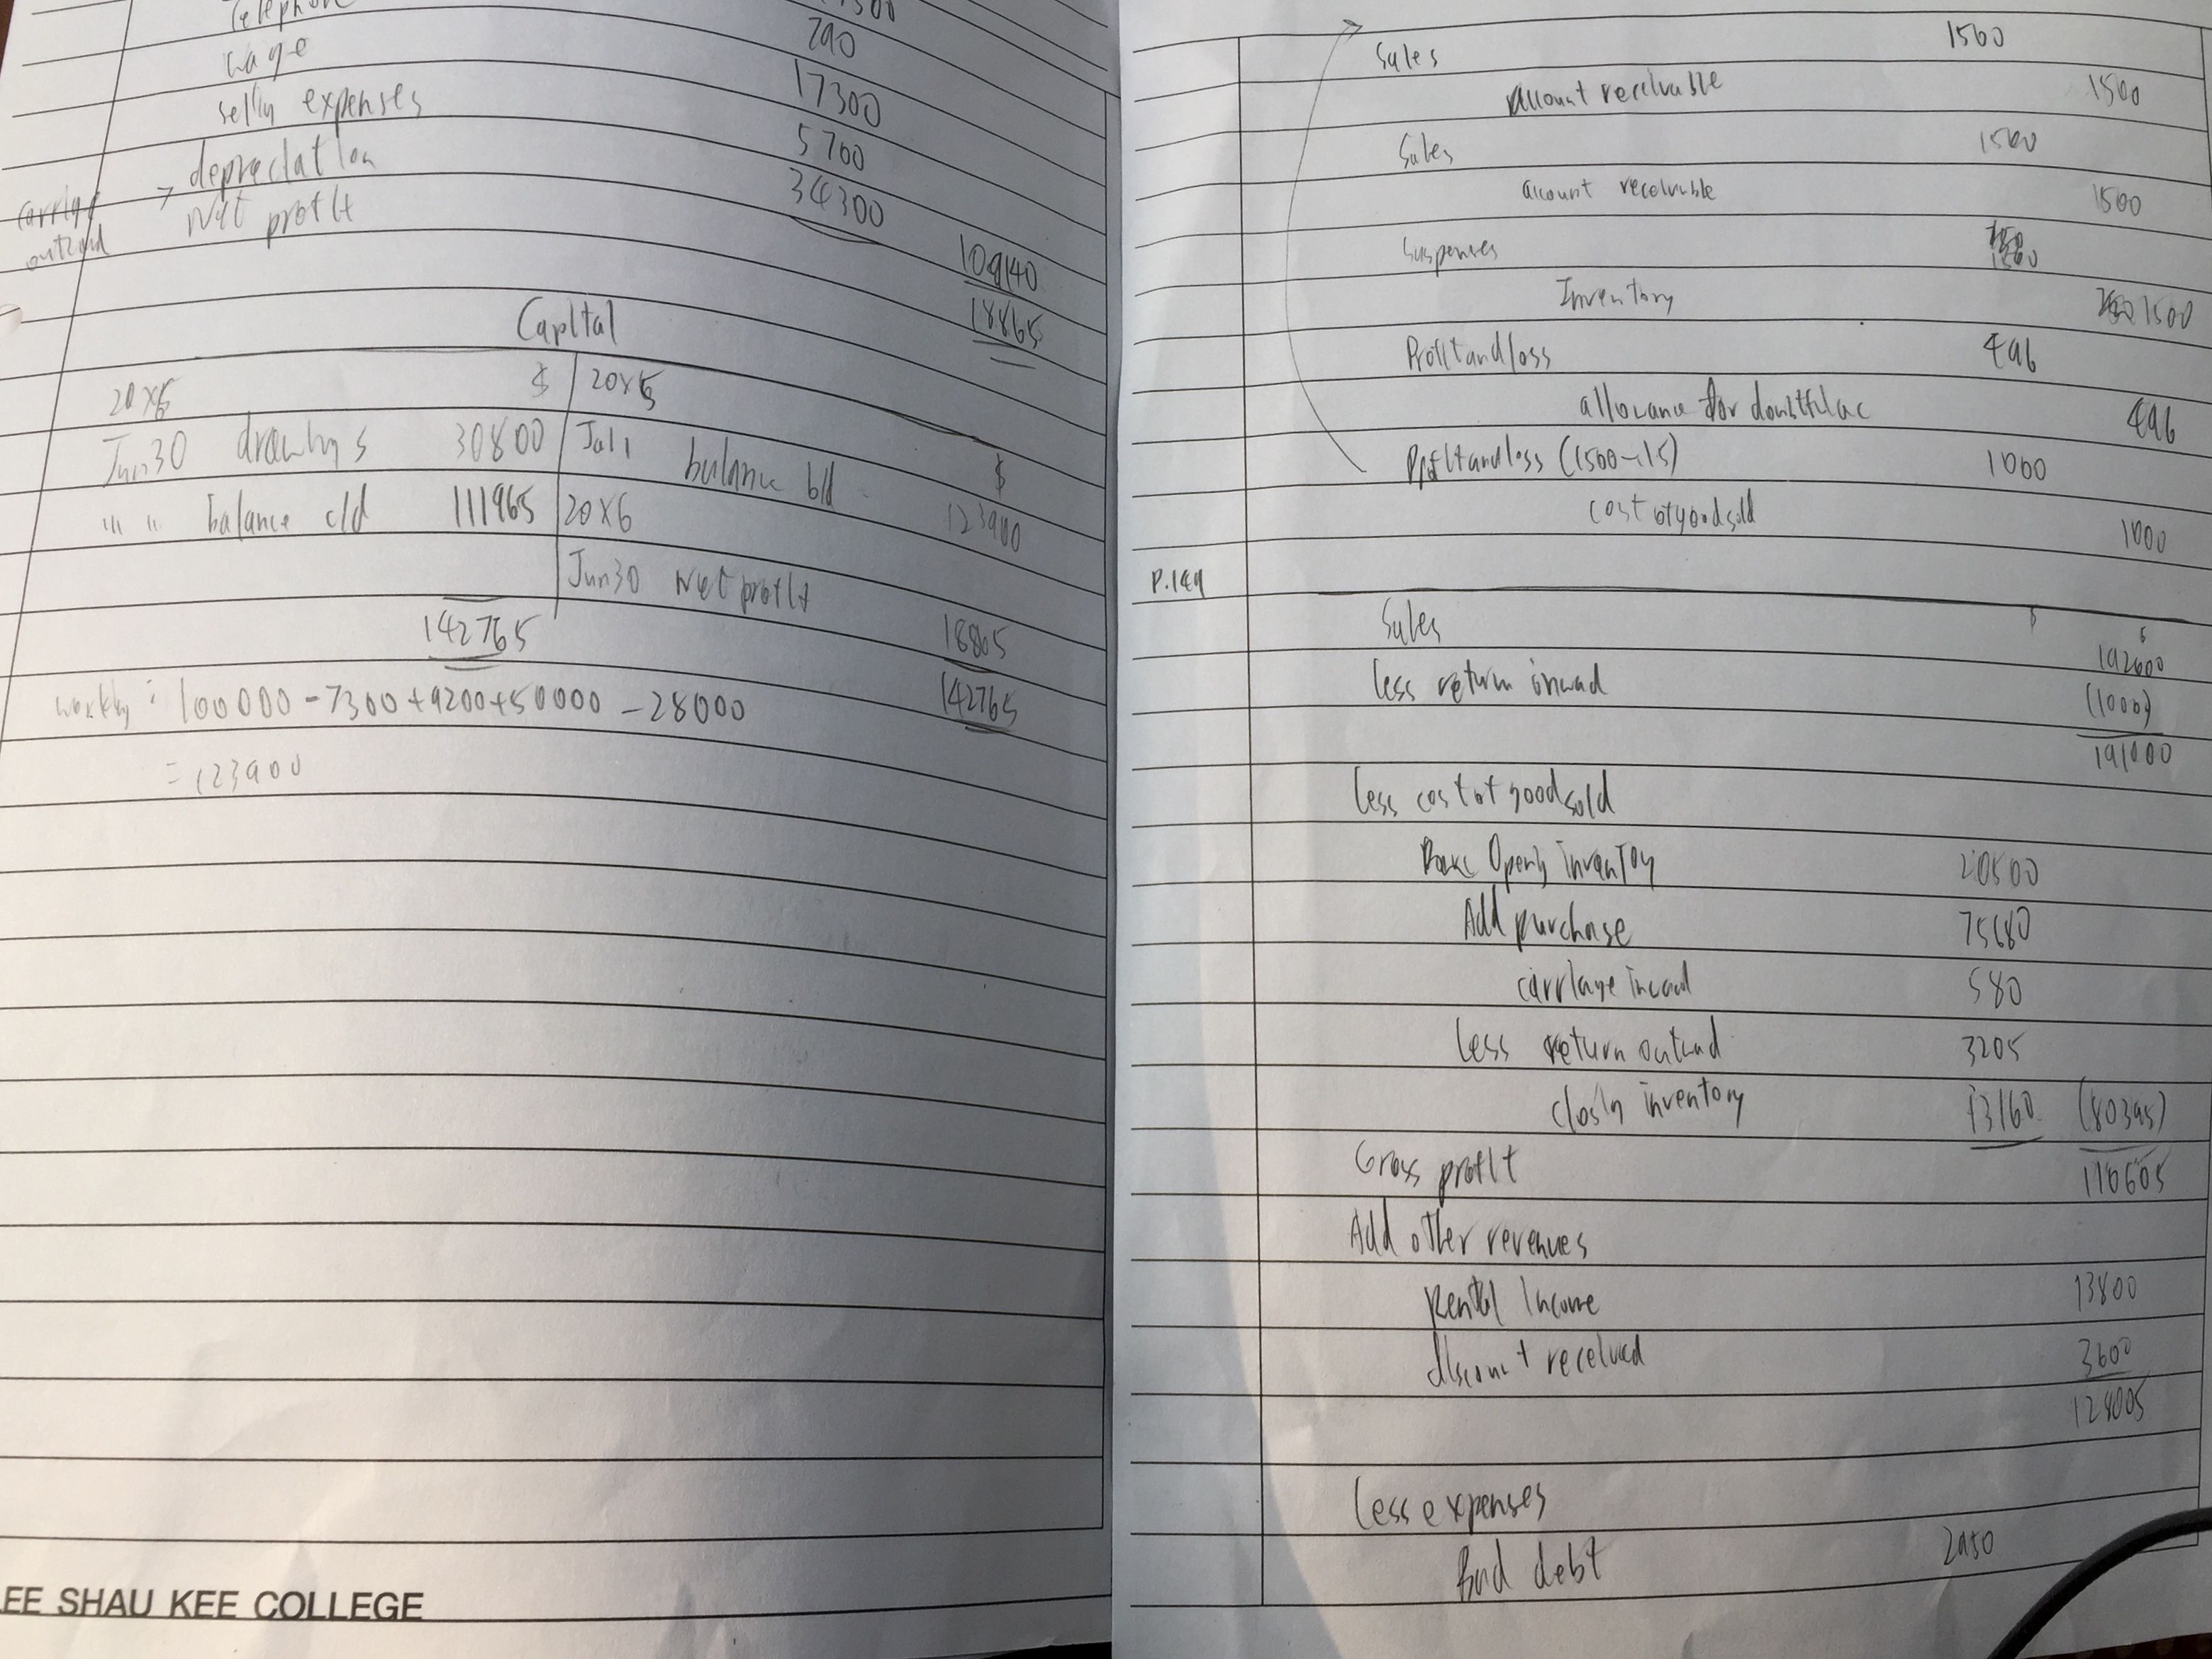 Telephone 1500
wage 290
selling expenses 17300
depreciation 5700
carriage outward → Net profit 34300
109140
18865
Capital
20X5 $ 20X5 $
Jun30 drawings 30800 Jul1 balance b/d 123900
"" "" balance c/d 111965 20X6
Jun30 Net profit 18865
142765 142765
working : 100000 - 7300 + 9200 + 50000 - 28000
= 123900
LEE SHAU KEE COLLEGE
Sales 1500
account receivable 1500
Sales 1500
account receivable 1500
Suspenses 1500
Inventory 1500
Profit and loss 496
allowance for doubtful ac 496
Profit and loss (1500÷1.5) 1000
cost of good sold 1000
P.149
$ $
Sales 192600
less return inward (1000)
191000
less cost of good sold
Opening inventory 20500
Add purchase 75680
carriage inward 580
less return outward 3205
closing inventory 13160 (80395)
Gross profit 110605
Add other revenues
Rental income 13800
discount received 3600
128005
less expenses
Bad debt 2950